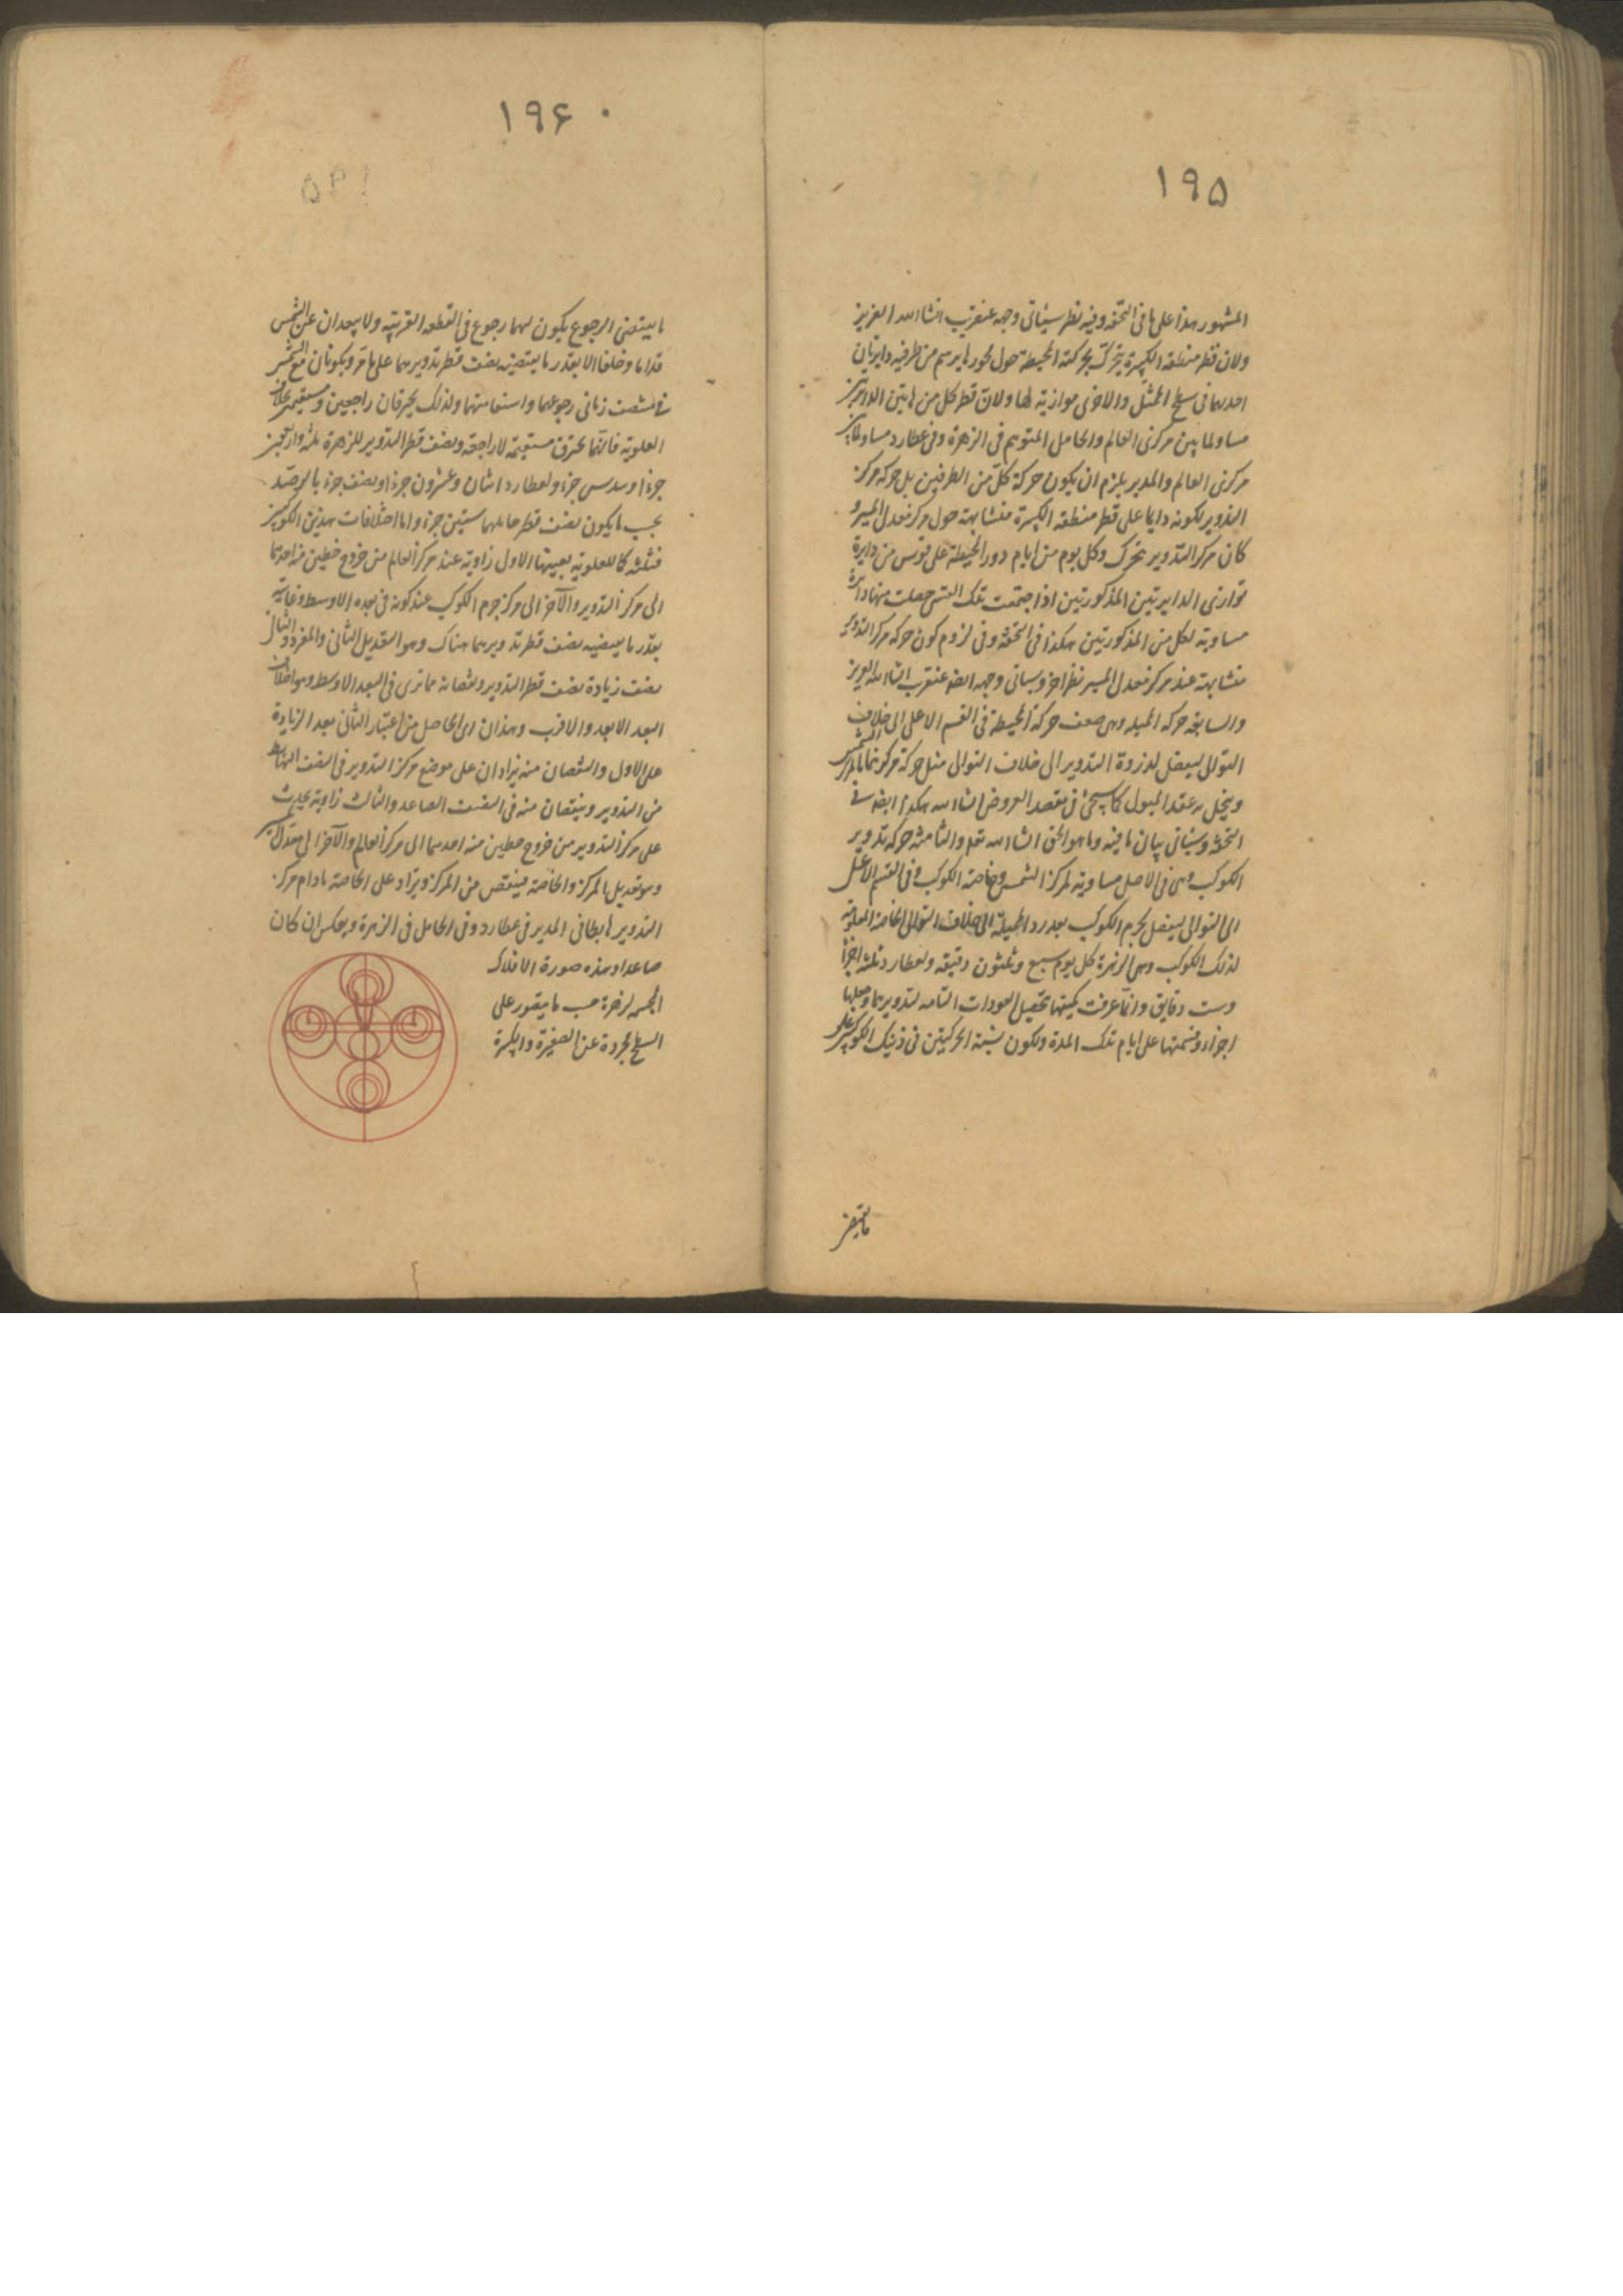 ١٩۵
المشهور هذا على ما فى التحفه وفيه نظر سيأتى وجهه عنقريب انشا الله العزيز
ولان قطر منطقه الكبيرة يتحرك بحركة المحيطة حول محورها يرسم من طرفيه دايرتان
احديهما فى سطح الممثل والاخرى موازية لها ولان قطر كل من هاتين الدايرتين
مساو لما بين مركزى العالم والحامل المتوهم فى الزهرة وفى عطارد مساو لما بين
مركزى العالم والمدير يلزم ان يكون حركة كل من الطرفين بل حركة مركز
التدوير لكونه دايما على قطر منطقه الكبيرة متشابهة حول مركز معدل المسير و
كان مركز التدوير تحرك وكل يوم من ايام دور المحيطة على قوس من دايرة
توازى الدايرتين المذكورتين اذا اجتمعت تلك القسى حصلت منها دايرة
مساوية لكل من المذكورتين هكذا فى التحفة وفى لزوم كون حركة مركز التدوير
متشابهة عند مركز معدل المسير نظر اخر وسياتى وجهه ايضا عنقريب انشا الله العزيز
والسابعة حركة المميلة وهى ضعف حركة المحيطة فى القسم الاعلى الى خلاف
التوالى ليفضل لذروة التدوير الى خلاف التوالى مثل حركة مركزها بالمركز الشمس
وينحل به عقد الميول كما سيجئ فى مقصد العروض انشا الله هكذا ايضا فى
التحفة وسيأتى بيان ما فيه وما هو الحق انشا الله تعالى والثامنة حركة تدوير
الكوكب وهى فى الاصل مساوية لمركز الشمس وخاصة الكوكب وفى القسم الاعلى
الى التوالى ليفضل لجرم الكوكب بعد رد المميلة الى خلاف التوالى الخاصة المعلومة
لذلك الكوكب وهى الزهرة كل يوم سبع وثلثون دقيقه ولعطارد ثلثة اجزا
وست دقايق وانما عرفت كميتها بتحصيل العودات التامه لتدويرهما وجعلها
اجزاء وقسمتها على ايام تلك المدة ولكون نسبة الحركتين فى ذينك الكوكبين على
ما يقتضى
١٩۶
ما يقتضى الرجوع يكون لهما رجوع فى القطعه القريبة ولا يبعدان عن الشمس
قداما وخلفا الا بقدر ما يقتضيه نصف قطر تدويرهما على ما مر ويكونان مع الشمس
فى منتصف زمانى رجوعهما واستقامتهما ولذلك يحترقان راجعين ومستقيمين بخلاف
العلوية فانها تحترق مستقيمة لا راجعة ونصف قطر التدوير للزهرة ثلثة واربعين
جزءا وسدس جزء ولعطارد اثنان وعشرون جزءا ونصف جزء بالرصد
بحسب ما يكون نصف قطر حاملهما ستين جزء واما اختلافات هذين الكوكبين
فثلثة كالعلوية بعينها الاول زاوية عند مركز العالم من خروج خطين منه احدهما
الى مركز التدوير والآخر الى مركز جرم الكوكب عند كونه فى بعده الاوسط وغايته
بقدر ما يقتضيه نصف قطر تدويرهما هناك وهو التعديل الثانى والمفرد والثانى
نصف زيادة نصف قطر التدوير ونقصانه مما ترى فى البعد الاوسط وهو اختلاف
البعد الابعد والاقرب وهذان اى الحاصل من اعتبار الثانى بعد الزيادة
على الاول والنقصان منه يزادان على موضع مركز التدوير فى النصف الهابط
من التدوير وينقصان منه فى النصف الصاعد والثالث زاوية يحدث
على مركز التدوير من خروج خطين منه احدهما الى مركز العالم والآخر الى معدل المسير
وهو تعديل المركز والخاصة فينقص من المركز ويزاد على الخاصة مادام مركز
التدوير هابطا فى المدير فى عطارد وفى الحامل فى الزهرة وبعكس ان كان
صاعدا وهذه صورة الافلاك
المجسمه لزهرة حسب ما يتصور على
السطح مجردة عن الصغيرة والكبيرة